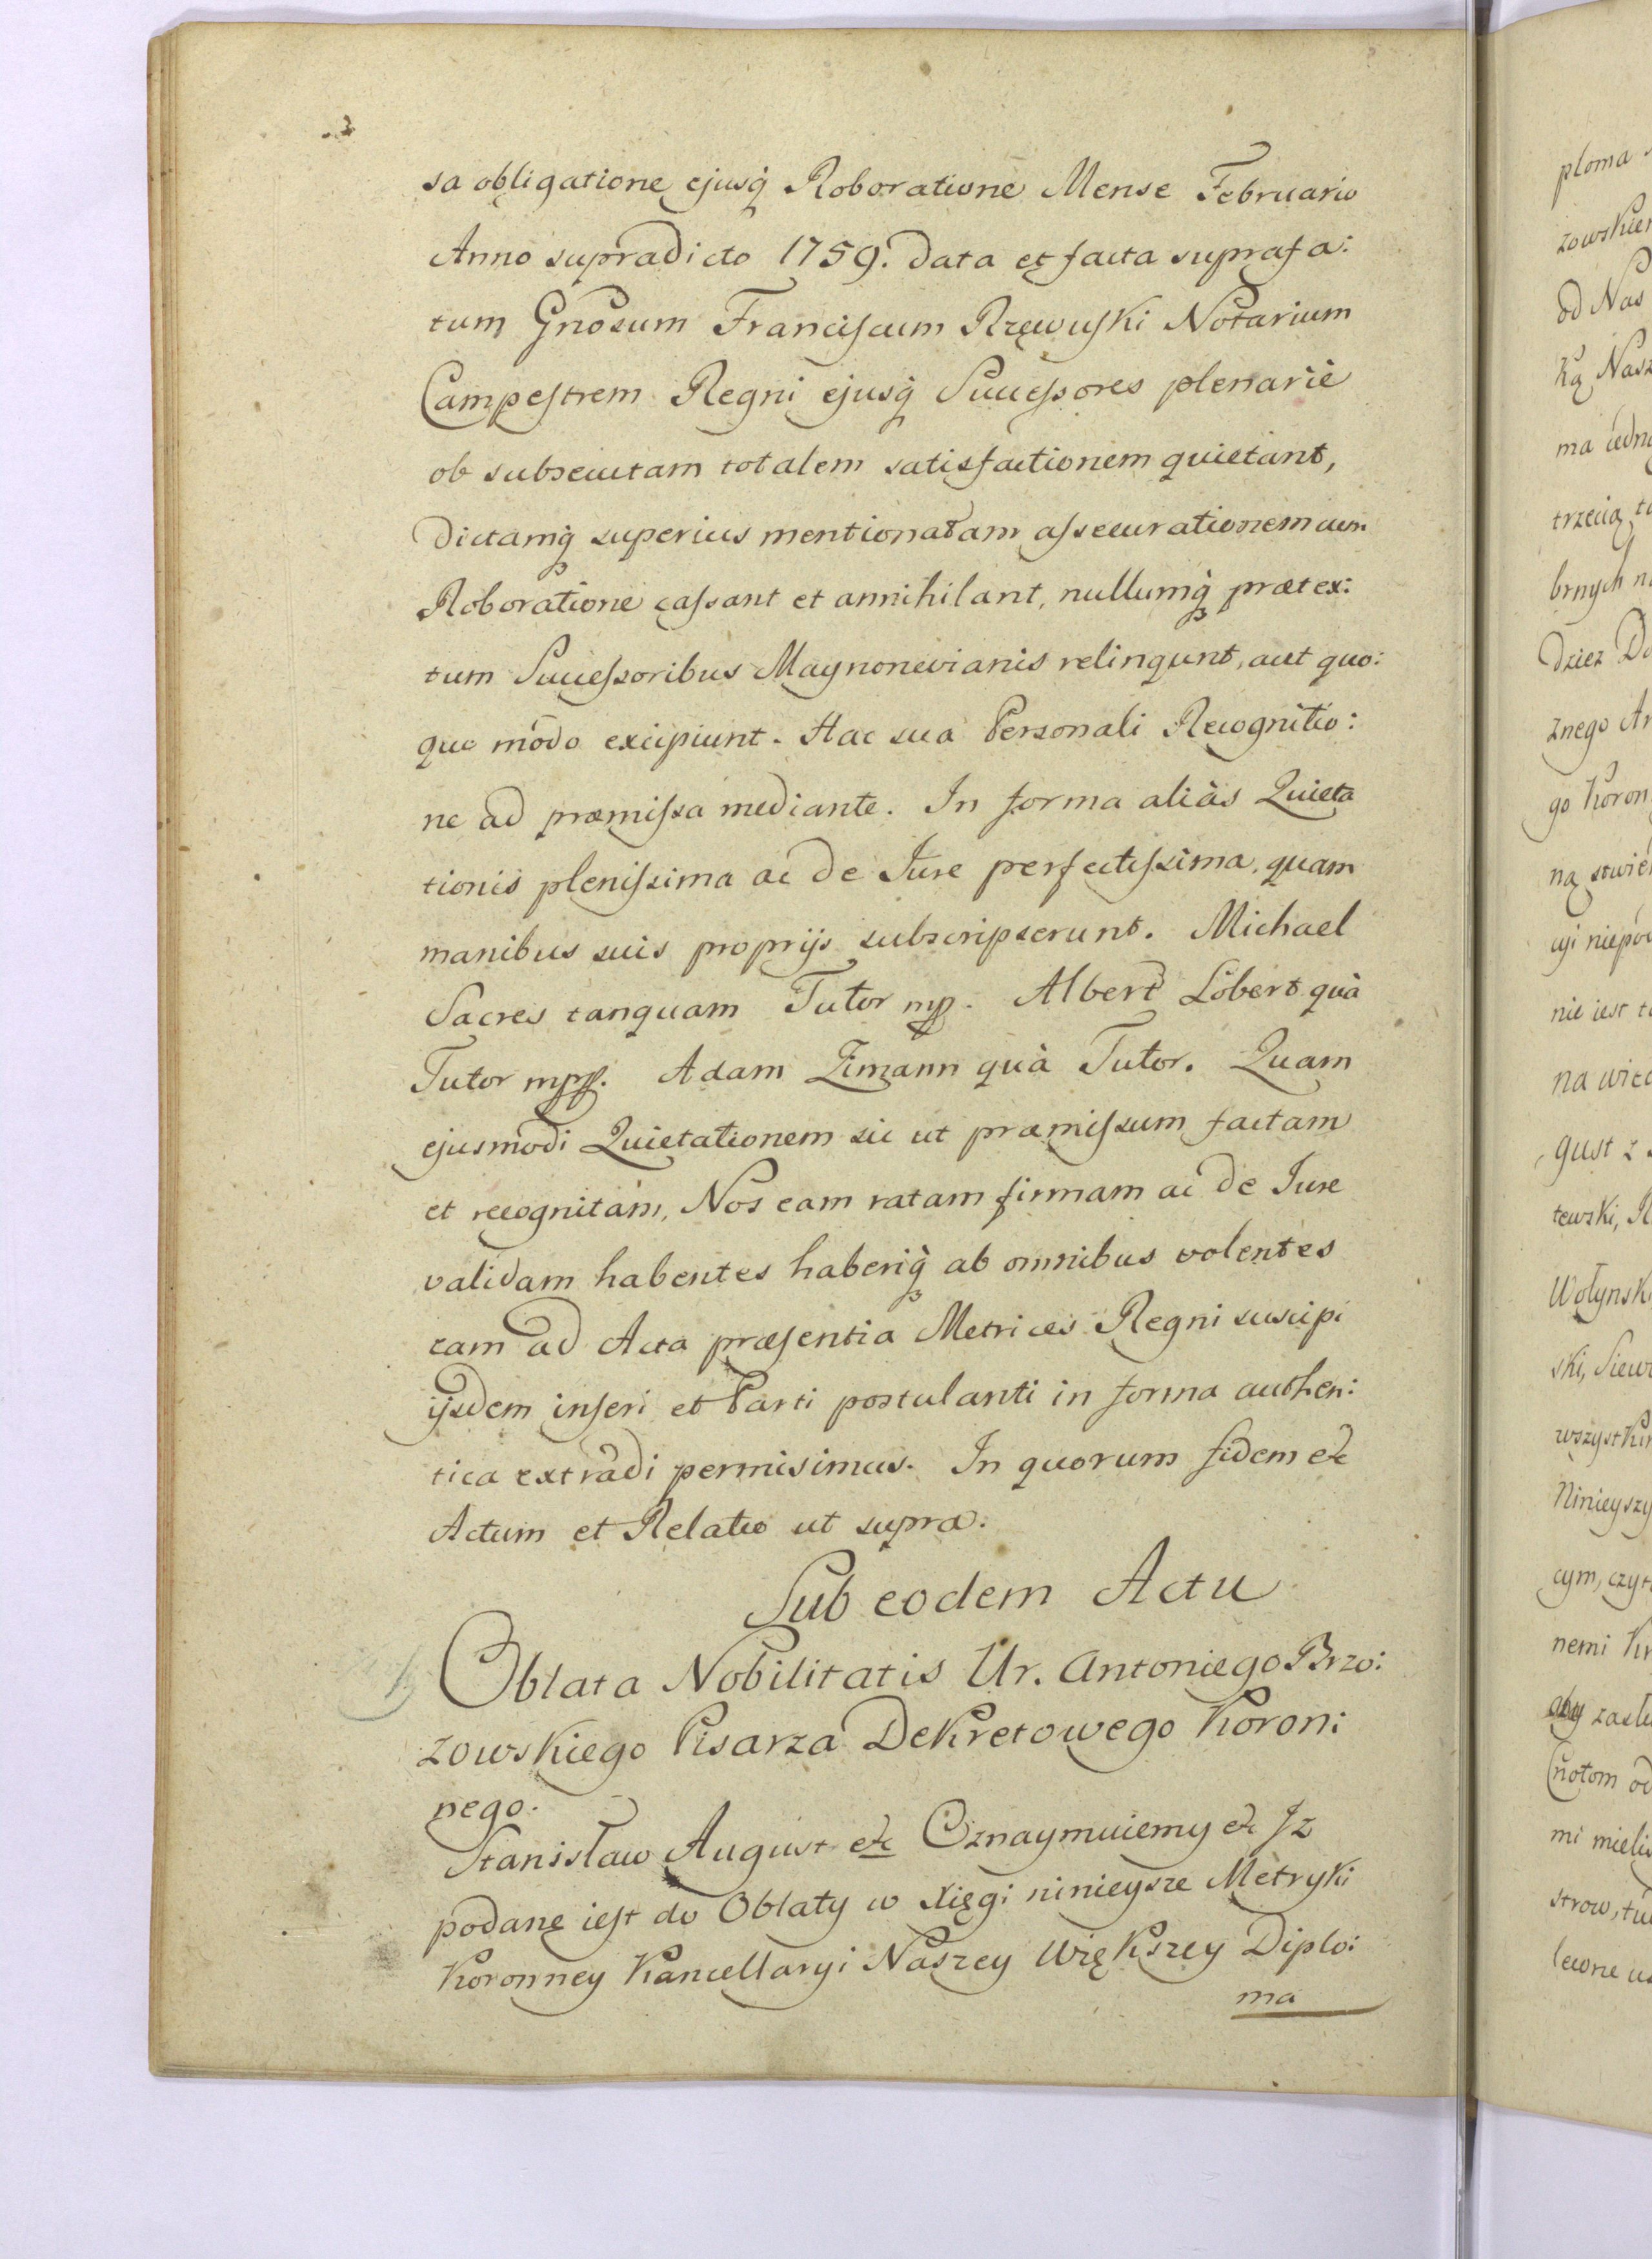 sa obligatione ejusq́ Roboratione Mense Februario
Anno supradicto 1759. data et facta suprafa:
tum Gnosum Franciscum Rzewuski Notarium
Campestrem Regni ejusq́ Successores plenarie
ob subsecutam totalem satisfactionem quietant,
dictamq́ superius mentionatam assecurationem cum
Roboratione cassant et annihilant, nullumq́ prætex:
tum Successoribus Magnonevianis relinqunt, aut quo:
quo modo excipiunt. Hac sua Personali Recognitio:
ne ad præmissa mediante. In forma aliàs Quieta
tionis plenissima ac de Jure perfectissima, quam
manibus suis proprijs subscripserunt. Michael
Sacres tanquam Tutor mp. Albert Löbert quà
Tutor mpp. Adam Zimann quà Tutor. Quam
ejusmodi Quietationem sic ut præmissum factam
et recognitam, Nos eam ratam firmam ac de Jure
validam habentes haberiq́ ab omnibus volentes
eam ad Acta præsentia Metrices Regni suscipi
ijsdem inseri et Parti postulanti in forma authen:
tica extradi permisimus. In quorum fidem etc
Actum et Relatio ut supra.
Sub eodem Actu
Oblata Nobilitatis Ur. Antoniego Brzo:
zowskiego Pisarza Dekretowego Koron:
nego.
Stanisław August etc Oznaymuiemy etc Jz
podane iest do Oblaty w Xięgi ninieysze Metryki
Koronney Kancellaryi Naszey Większey Diplo:
ma